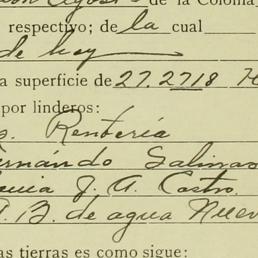 de la Colonia
respectivo; de la cual
de hoy
a superficie de 27.2718 H
por linderos:
Rentería
ernándo Salinas
J. A. Castro
B. de agua Nuev
as tierras es como sigue: